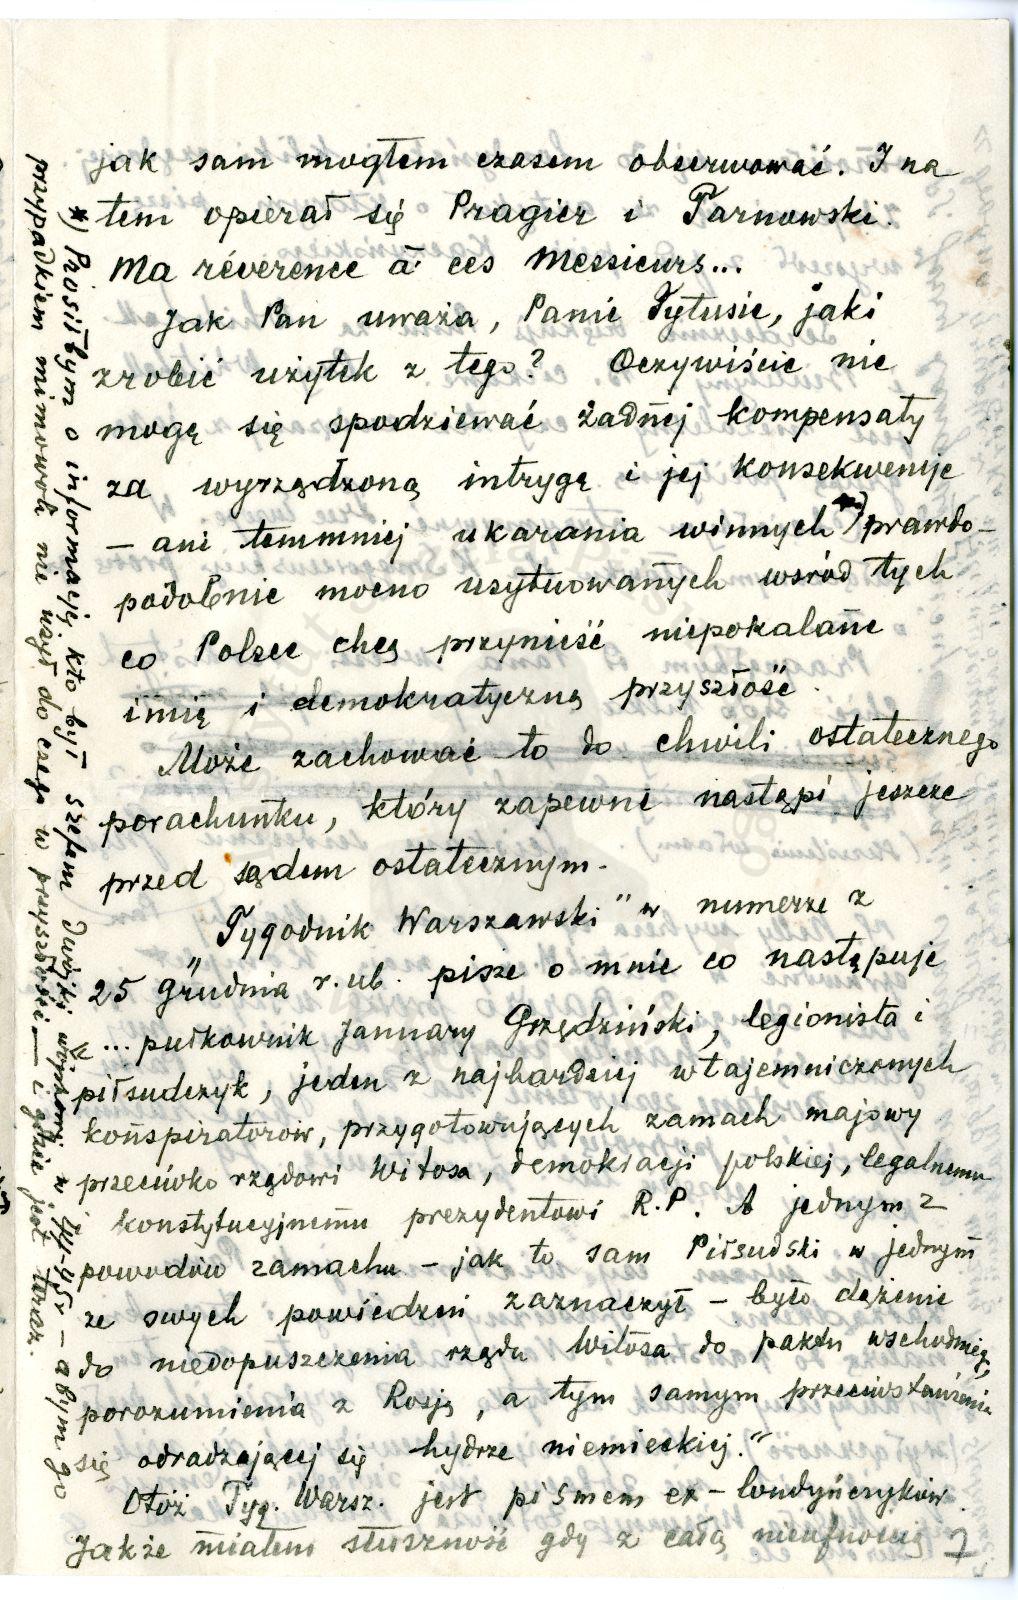 jak sam mogłem czasem obserwować. I na
tem opierał się Pragier i Tarnowski.
Ma révérence à ces Messieurs...
Jak Pan uważa, Panie Tytusie, jaki
zrobić użytek z tego? Oczywiście nie
mogę się spodziewać żadnej kompensaty
za wyrządzoną intrygę i jej konsekwencje
– ani temmniej ukarania winnych *) prawdo–
podobnie mocno usytuowanych wśród tych
co Polsce chcą przynieść niepokalane
imię i demokratyczną przyszłość.
Może zachować to do chwili ostatecznego
porachunku, który zapewne nastąpi jeszcze
przed sądem ostatecznym.
„Tygodnik Warszawski" w numerze z
25 grudnia r. ub. pisze o mnie co następuje
„... pułkownik January Grzędziński, legionista i
piłsudczyk, jeden z najbardziej wtajemniczonych
konspiratorów, przygotowujących zamach majowy
przeciwko rządowi Witosa, demokracji polskiej, legalnemu
konstytucyjnemu prezydentowi R.P. A jednym z
powodów zamachu – jak to sam Piłsudski w jednym
ze swych powiedzeń zaznaczył – było dążenie
do niedopuszczenia rządu Witosa do paktu wschodniego,
porozumienia z Rosją, a tym samym przeciwstawienia
się odradzającej się hydrze niemieckiej."
Otóż Tyg. Warsz. jest pismem ex-londyńczyków.
Jakże miałem słuszność gdy z całą nieufnością
7
*) Prosiłbym o informację kto był szefem Dwójki w 44-45r – abym go
przypadkiem mimowoli nie wziął do czego w przyszłości — i gdzie jest teraz.